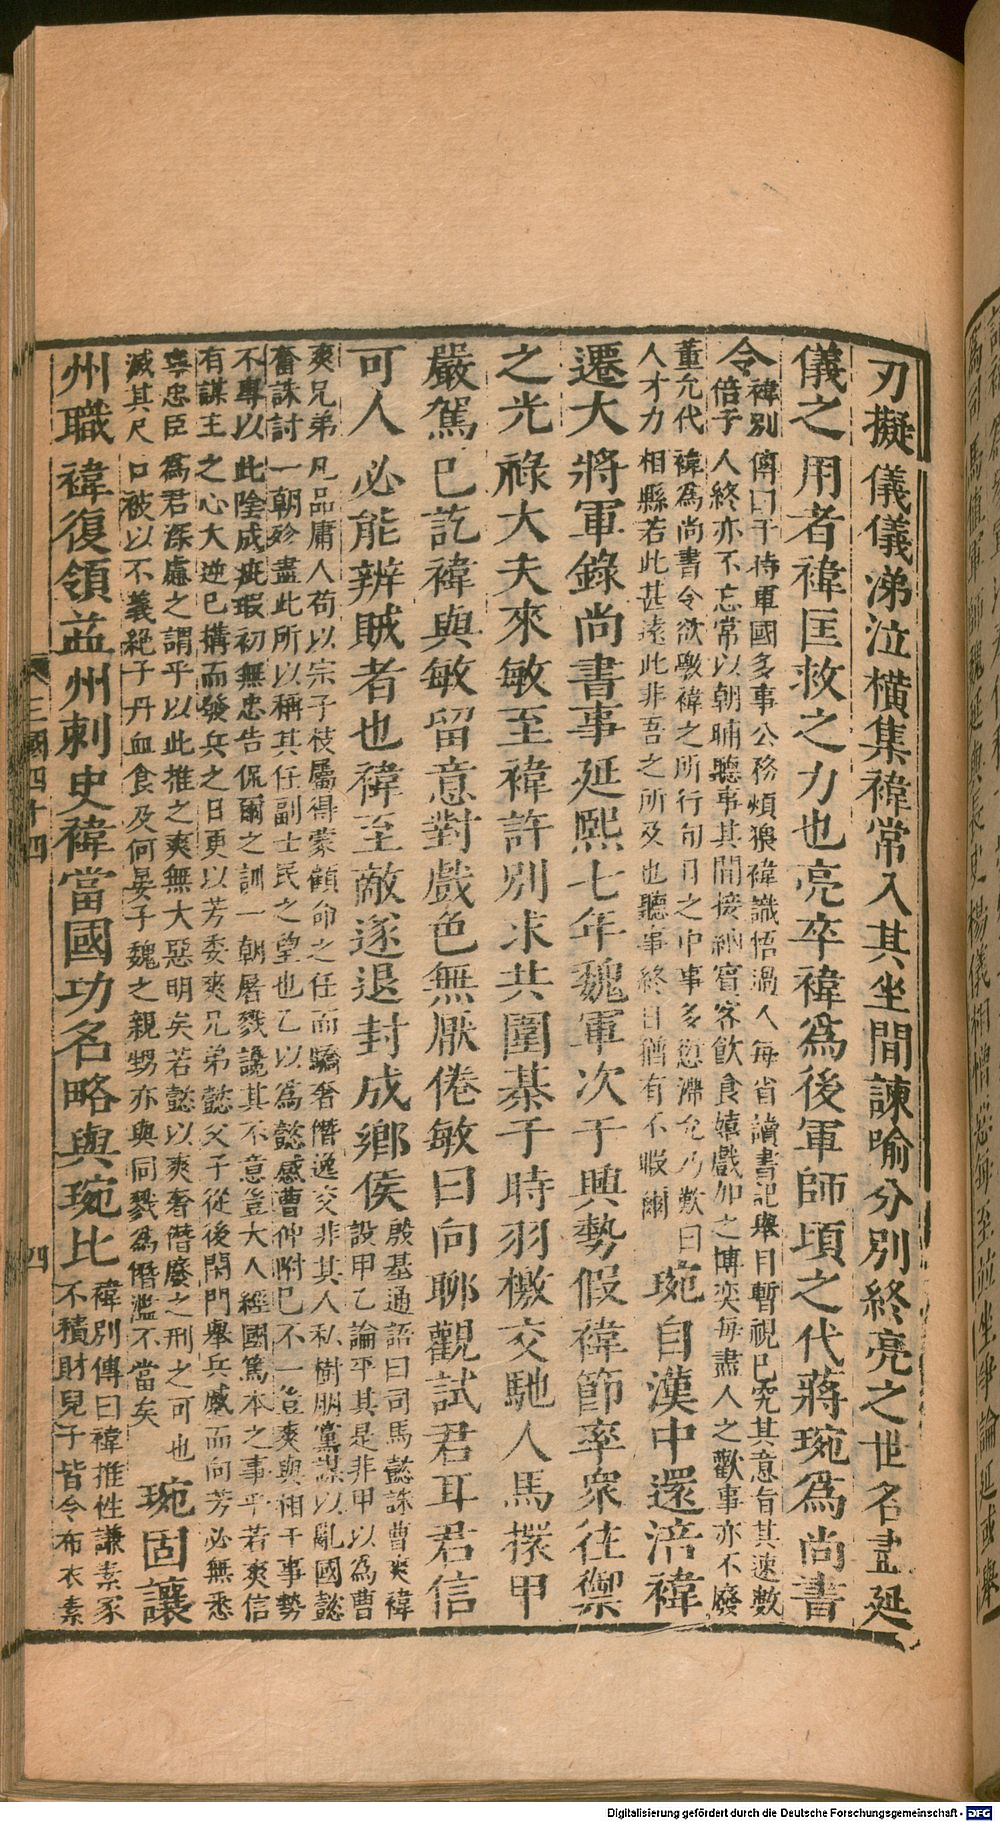 刃擬儀儀涕泣橫集禕常入其坐間諫喻分別終亮之世名盡延
儀之用者禕匡救之力也亮卒禕爲後軍師頃之代蔣琬爲尚書
令
禕別傳曰于時軍國多事公務煩猥禕識悟過人每省讀書記舉目暫視已究其意旨其速數
倍于人終亦不忘常以朝晡聽事其間接納賓客飲食嬉戲加之博奕每盡人之歡事亦不廢
董允代禕爲尚書令欲斆禕之所行旬日之中事多愆滯允乃歎曰
人才力相縣若此甚遠此非吾之所及也聽事終日猶有不暇爾
琬自漢中還涪禕
遷大將軍錄尚書事延熙七年魏軍次于興勢假禕節率衆往禦
之光祿大夫來敏至禕許別求共圍棊于時羽檄交馳人馬擐甲
嚴駕已訖禕與敏留意對戲色無厭倦敏曰向聊觀試君耳君信
可人必能辨賊者也禕至敵遂退封成鄉侯
殷基通語曰司馬懿誅曹爽禕
設甲乙論平其是非甲以爲曹
爽兄弟凡品庸人苟以宗子枝屬得蒙顧命之任而驕奢僭逸交非其人私樹朋黨謀以亂國懿
奮誅討一朝殄盡此所以稱其任副士民之望也乙以爲懿感曹仲附已不一豈爽與相干事勢
不專以此陰成疵瑕初無忠告侃爾之訓一朝屠戮讒其不意豈大人經國篤本之事乎若爽信
有謀主之心大逆已搆而發兵之日更以芳委爽兄弟懿父子從後閉門舉兵蹙而向芳必無悉
寧忠臣爲君深慮之謂乎以此推之爽無大惡明矣若懿以爽奢僭廢之刑之可也
滅其尺口被以不義絕子丹血食及何晏子魏之親甥亦與同戮爲僭濫不當矣
琬固讓
州職禕復領益州刺史禕當國功名略與琬比
禕別傳曰禕推性謙素家
不積財兒子皆令布衣素
三國四十四
四
Digitalisierung gefördert durch die Deutsche Forschungsgemeinschaft - DFG